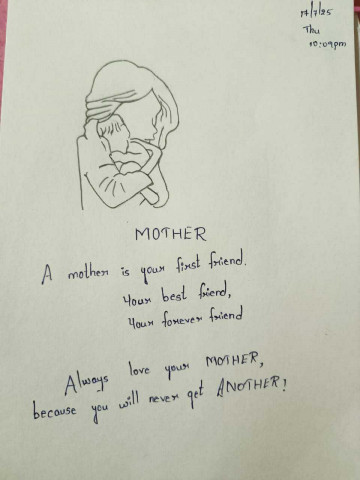 17/7/25
Thu
10:09pm
MOTHER
A mother is your first friend.
Your best friend,
Your forever friend
Always love your MOTHER,
because you will never get ANOTHER!